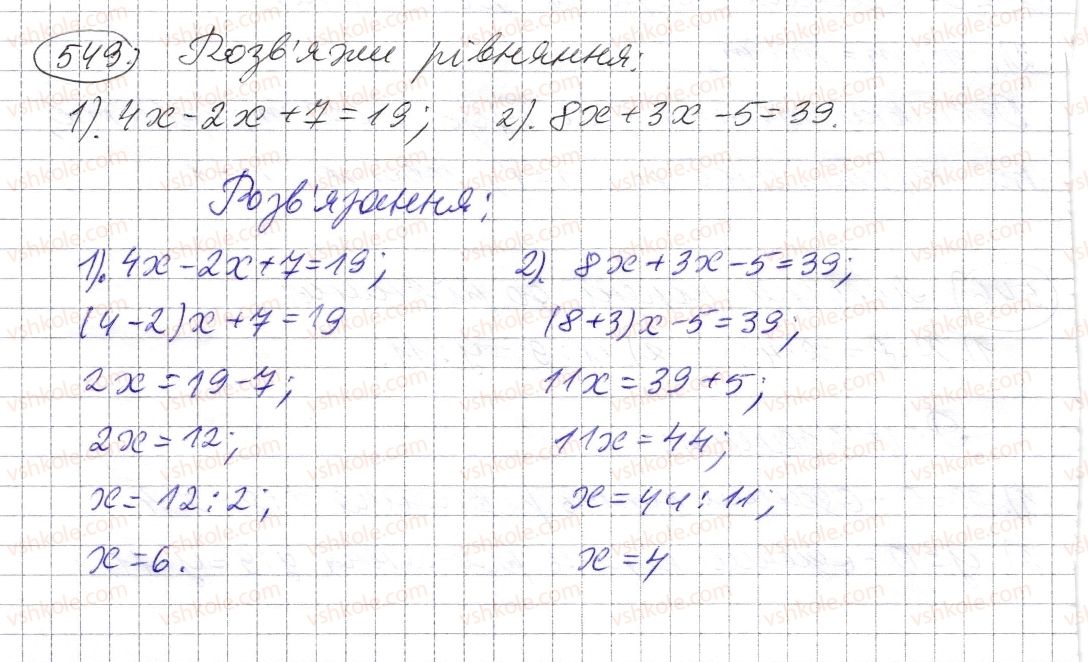 549.) Розв'яжи рівняння:
1). 4x - 2x + 7 = 19; 2). 8x + 3x - 5 = 39.
Розв'язання:
1). 4x - 2x + 7 = 19; 2). 8x + 3x - 5 = 39;
(4 - 2)x + 7 = 19 (8 + 3)x - 5 = 39;
2x = 19 - 7; 11x = 39 + 5;
2x = 12; 11x = 44;
x = 12 : 2; x = 44 : 11;
x = 6. x = 4
vshkole.com